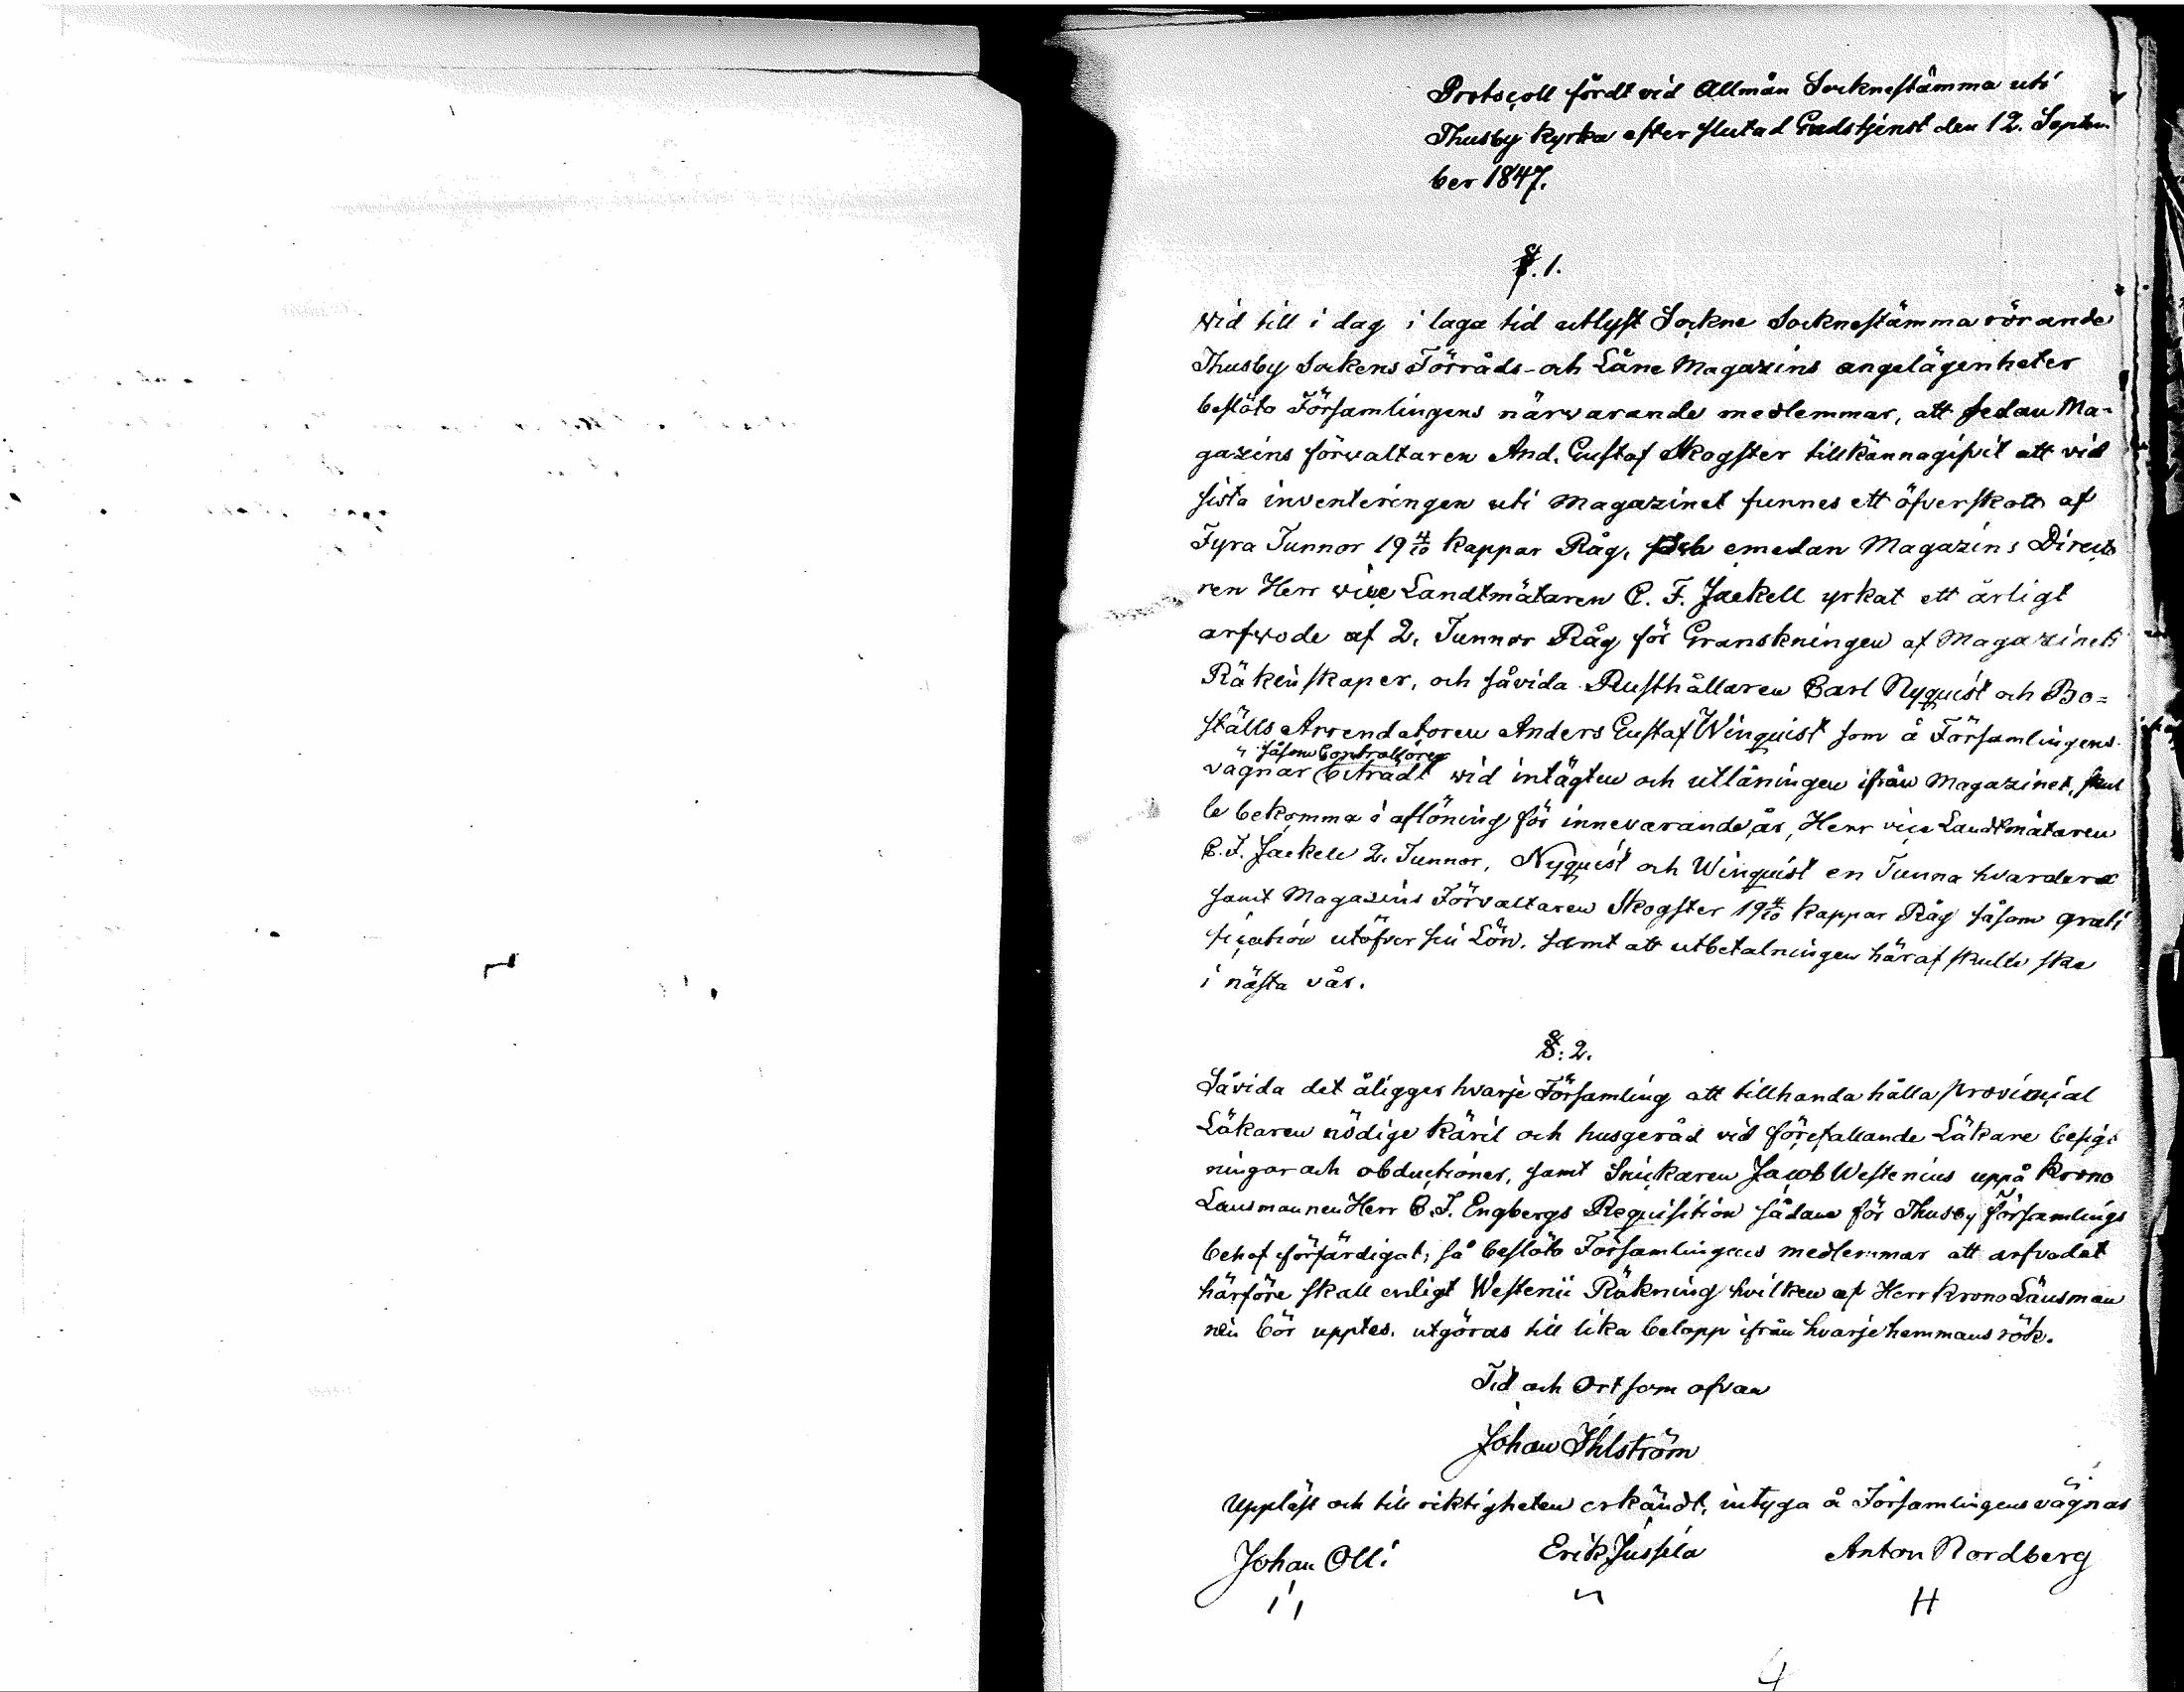 Protocoll fördt vid Allmän Socknestämma uti
Thusby Kyrka efter slutad Gudstjenst den 12. Septem
ber 1847.
§. 1.
Wid till i dag i laga tid utlyst Sockne Socknestämma rörande
Thusby Sockens Förråds- och Låne Magazins angelägenheter
beslöto Församlingens närwarande medlemmar, att sedan Ma-
gazins förvaltaren And. Gustaf Skogster tillkännagifvit att vid
sista inventeringen uti Magazinet funnes ett öfverskott af
Fyra Tunnor 19 4/10 kappar Råg, och emedan Magazins Directo
ren Herr vice Landtmätaren C. F. Jaekell yrkat ett årligt
arfwode af 2. Tunnor Råg för Granskningen af Magazinets
Räkenskaper, och såvida Rusthållaren Carl Nyquist och Bo-
ställs Arrendatoren Anders Gustaf Winquist som å Församlingens
såsom Controllörer
vägnar biträdt vid intägten och utlåningen ifrån Magazinet, skul
le bekomma i aflöning för innevarande år, Herr vice Landtmätaren
C. F. Jaekell 2. Tunnor, Nyquist och Winquist en Tunna hvardera
samt Magazins Förvaltaren Skogster 19 4/10 kappar Råg såsom grati
fication utöfver sin Lön, samt att utbetalningen häraf skulle ske
i nästa vår.
§. 2.
Såvida det åligger hvarje Församling att tillhanda hålla provincial
Läkaren nödige käril och husgeråd vid förefallande Läkare besigt
ningar och obductioner, samt Snickaren Jacob Westenius uppå krono
Länsmannen Herr C. J. Engbergs Requisition sådane för Thusby församlings
behof förfärdigat; så beslöto Församlingens medlemmar att arfvodet
härföre skall enligt Westenii Räkning hvilken af Herr krono Länsman
nen bör upptes. utgöras till lika belopp ifrån hvarje hemmans rök.
Tid och Ort som ofvan
Johan Ihlström
Uppläst och till riktigheten erkändt, intyga å Församlingens vägnar
Johan Olli Erik Jussila Anton Nordberg
H
4